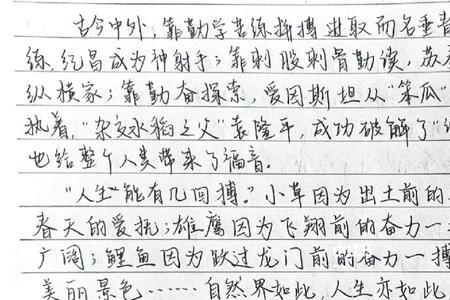 古今中外，靠勤学苦练拼搏进取而名垂青
练，纪昌成为神射手；靠刺股刺骨勤读，苏
纵横家；靠勤奋探索，爱因斯坦从“笨瓜”
执着，“杂交水稻之父”袁隆平，成功破解了
也给整个人类带来了福音。
“人生能有几回搏。”小草因为出土前的
春天的爱抚；雄鹰因为飞翔前的奋力一
广阔；鲤鱼因为跃过龙门前的奋力一搏
美丽景色……自然界如此，人生亦如此